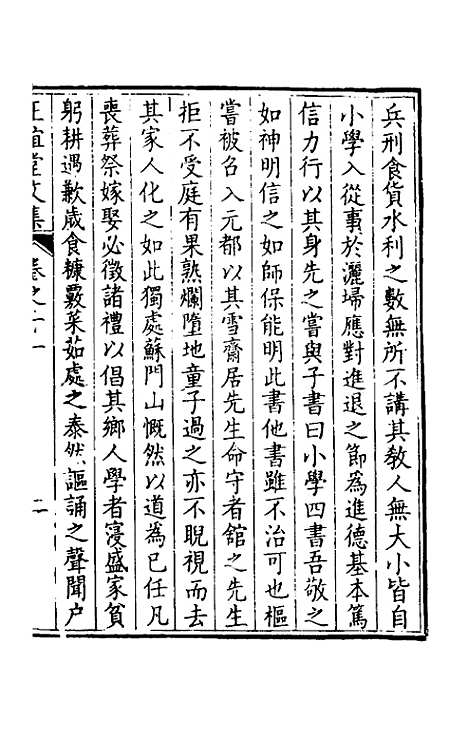 兵刑食貨水利之數無所不講其敎人無大小皆自
小學入從事於灑埽應對進退之節爲進德基本篤
信力行以其身先之嘗與子書曰小學四書吾敬之
如神明信之如師保能明此書他書雖不治可也樞
嘗被召入元都以其雪齋居先生命守者舘之先生
拒不受庭有果熟爛墮地童子過之亦不睨視而去
其家人化之如此獨處蘇門山慨然以道為已任凡
喪葬祭嫁娶必徵諸禮以倡其鄉人學者寖盛家貧
躬耕遇歉歲食糠覈菜茹處之泰然謳誦之聲聞户
正誼堂文集 卷之十一 二